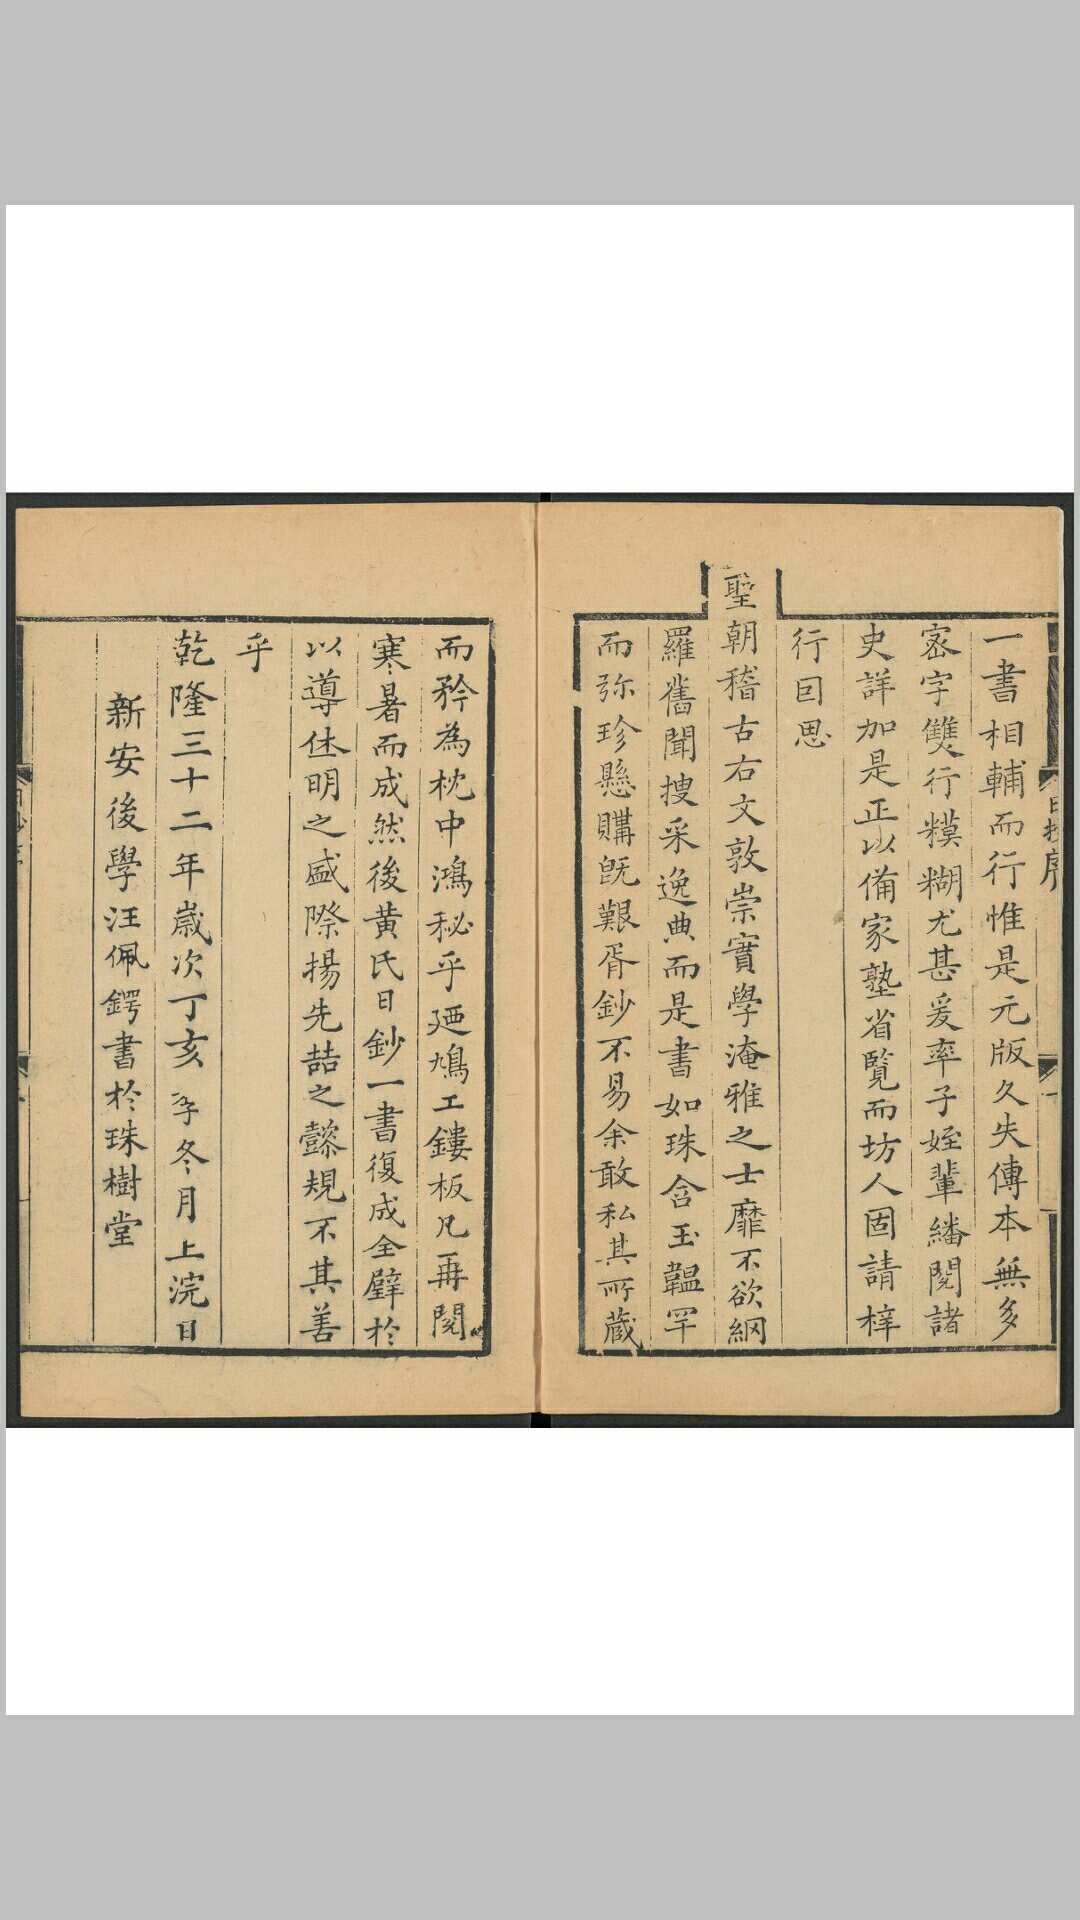 一書相輔而行惟是元版久失傳本無多
宻字雙行糢糊尤甚爰率子姪輩繙閱諸
史詳加是正以備家塾省覽而坊人固請梓
行囙思
聖朝稽古右文敦崇實學淹雅之士靡不欲綱
羅舊聞搜采逸典而是書如珠含玉韞罕
而弥珍懸購旣艱胥鈔不易余敢私其所蔵
而矜為枕中鴻秘乎廼鳩工鏤板凡再閱
寒暑而成然後黄氏日鈔一書復成全璧於
以導休明之盛際揚先喆之懿規不其善
乎
乾隆三十二年歲次丁亥冬月上浣日
新安後學汪佩鍔書於珠樹堂